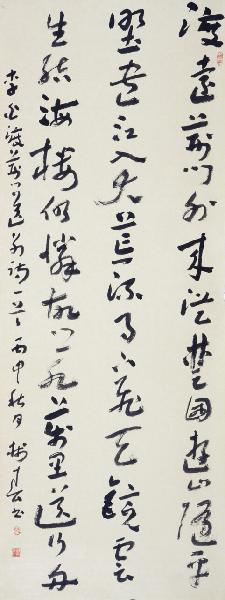 渡遠荊門外來從楚國遊山隨平
野盡江入大荒流月下飛天鏡雲
生結海樓仍憐故鄉水萬里送行舟
李白渡荊門送別詩一首丙申秋月